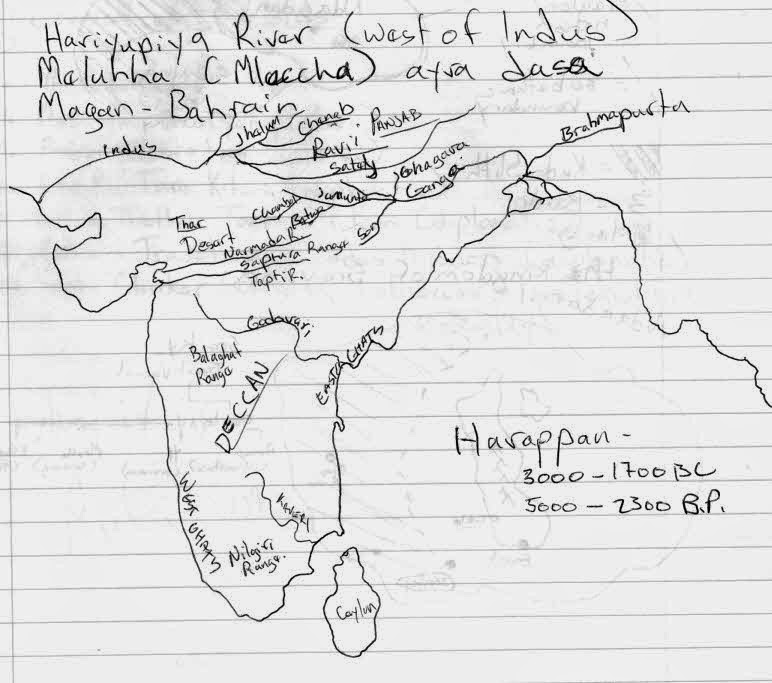 Hariyupiya River (west of Indus)
Meluhha (Mleccha) ayra dasa
Magan - Bahrain
Indus
Jhelum
Chenab
Ravi
PANJAB
Satulj
Ghagara
Ganga
Brahmapurta
Chambal
Jamuna
Betwa
Son
Thar
Desart
Narmada R.
Saptura Range
Tapti R.
Godavari
Balaghat
Range
DECCAN
EAST GHATS
Harappan -
3000 - 1700 BC
5000 - 2300 B.P.
WEST GHATS
KAVERI
Nilgiri
Range.
Caylun